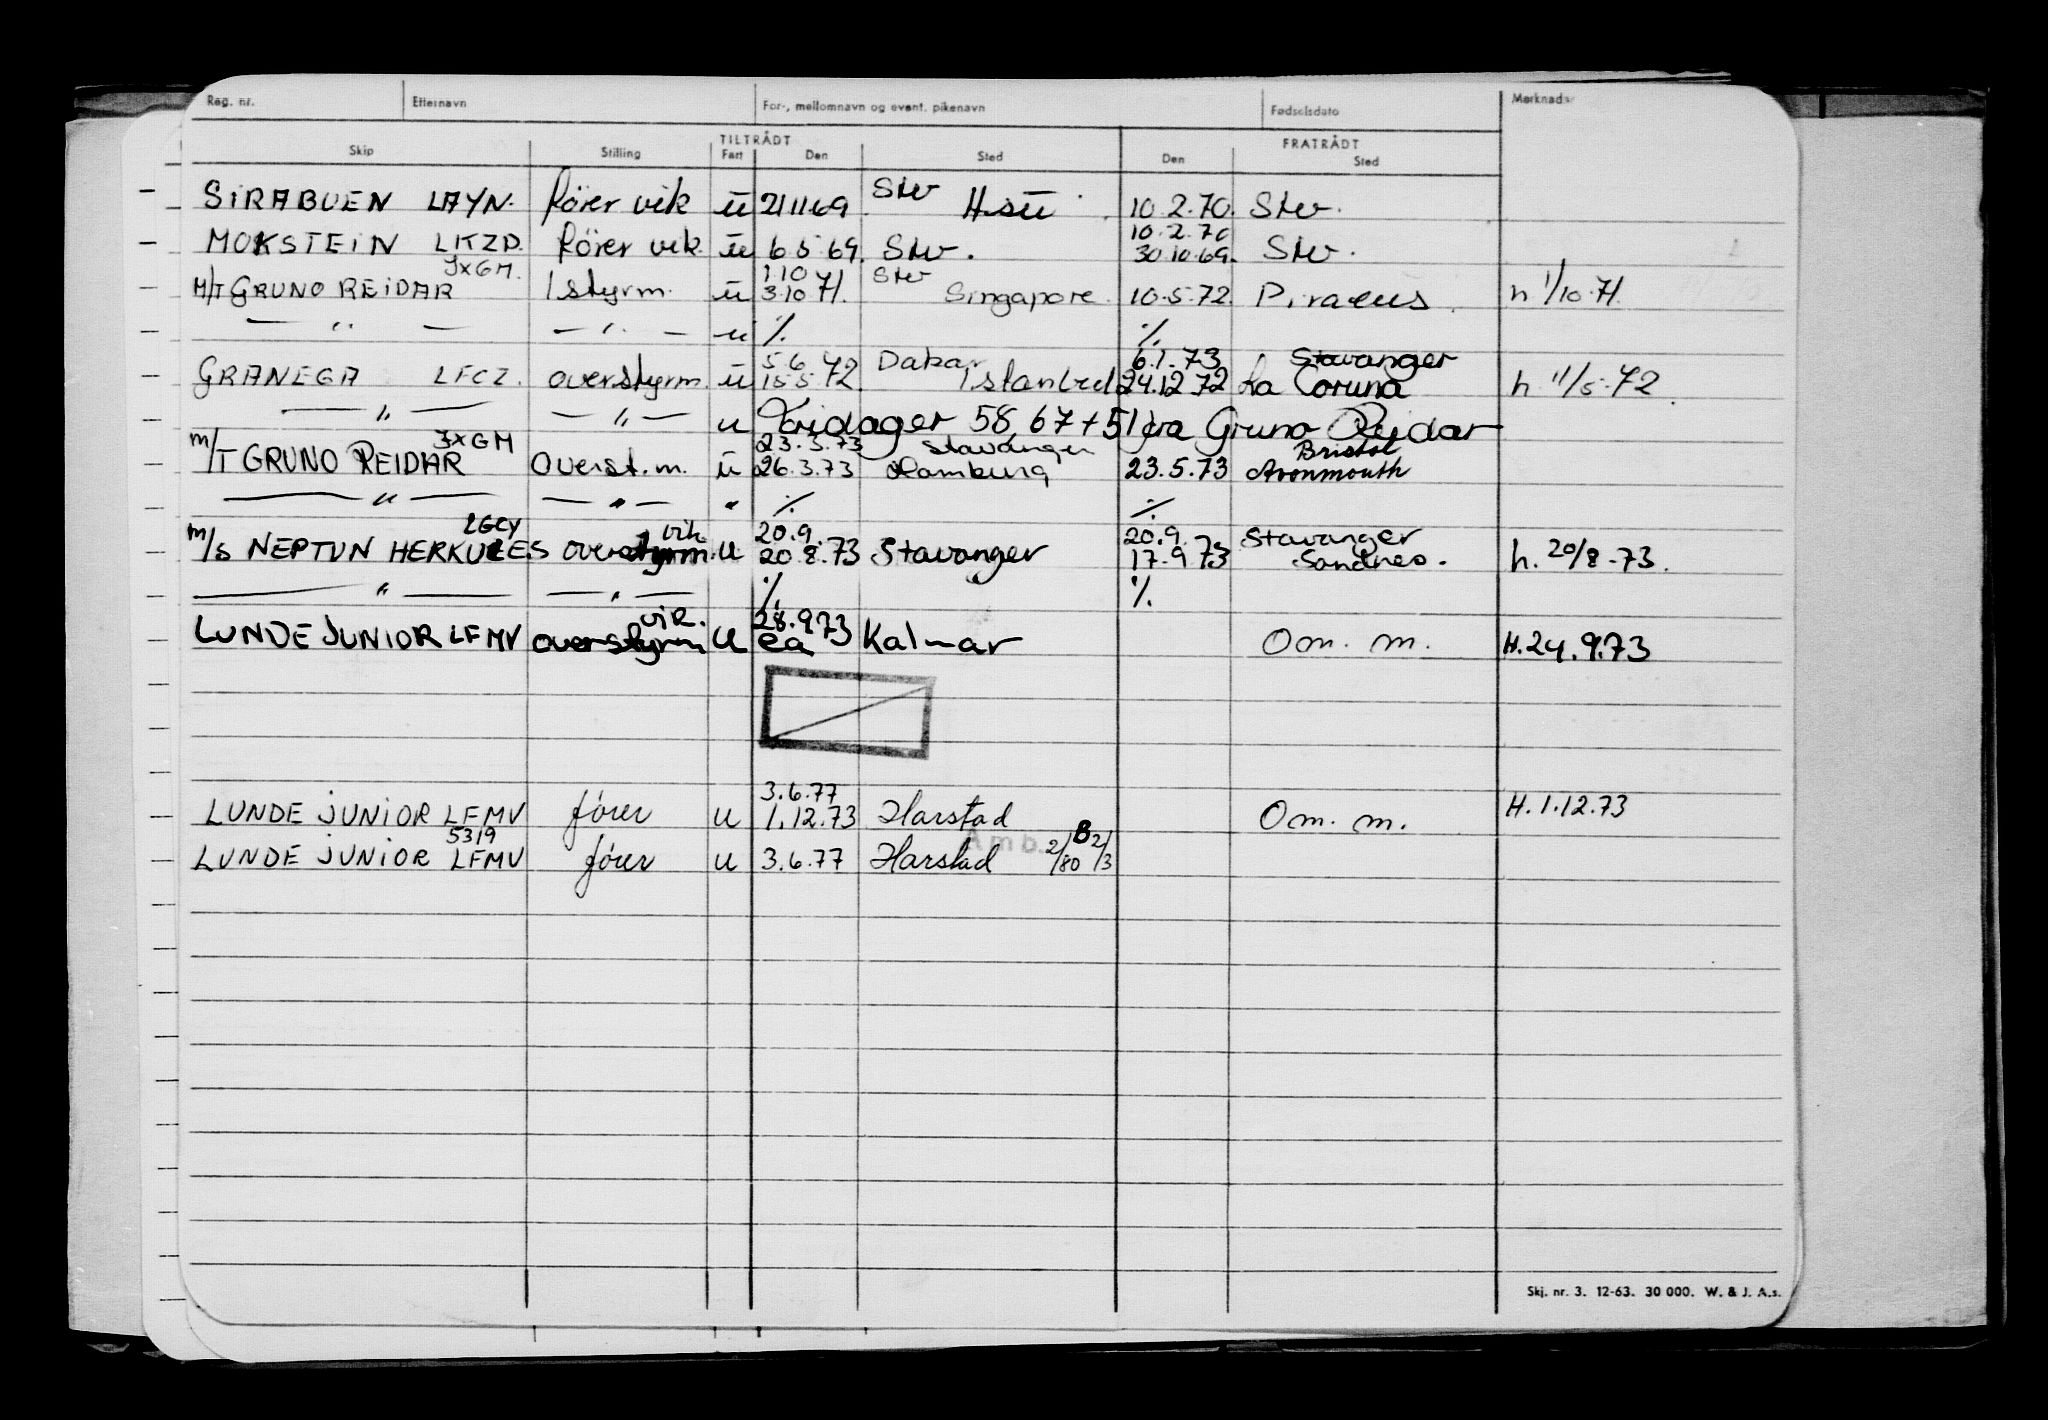 Reg. nr. Efternavn For-, mellomnavn og event. pikenavn Fødselsdato Merknader
TILTRÅDT FRATRÅDT
Skip Stilling Fart Den Sted Den Sted
SIRABUEN LAYN. förer vik ū 21.11.69 Stv 10.2.70. Stv.
10.2.70
MOKSTEIN LKZD. förer vik. ū 6.5.69. Stv. 30.10.69. Stv.
JXGM. 1.10 Stv
M/T GRUNO REIDAR 1 styrm. ū 3.10 71. Singapore. 10.5.72. Piraeus. h 1/10.71.
— " — — " — u % %
5.6 Dakar 6.1.73 Stavanger
GRANEGA LFCZ. overstyrm. ū 15.5 72 Istanbul 24.12.72 La Coruna h. 11/5-72.
— " — — " — u Fridager 58 67 + 51 fra Gruno Reidar
JXGM 23.3.73 Stavanger Bristol
m/T GRUNO REIDAR Overst.m. ū 26.3.73 Hamburg 23.5.73 Avonmouth
— " — — " — " % %
LGCY vik 20.9. 20.9. Stavanger
m/s NEPTUN HERKULES overstyrm. u 20.8.73 Stavanger 17.9.73 Sandnes. h. 20/8-73.
— " — — " — % %
vik. 28.9.73
LUNDE JUNIOR LFMV overstyrm u ca Kalmar Om. m. H.24.9.73
3.6.77
LUNDE JUNIOR LFMV förer u 1.12.73 Harstad Om. m. H.1.12.73
5319 Amb. B
LUNDE JUNIOR LFMV förer u 3.6.77 Harstad 2/80 2/3
Skj. nr. 3. 12-63. 30 000. W. & J. A.s.